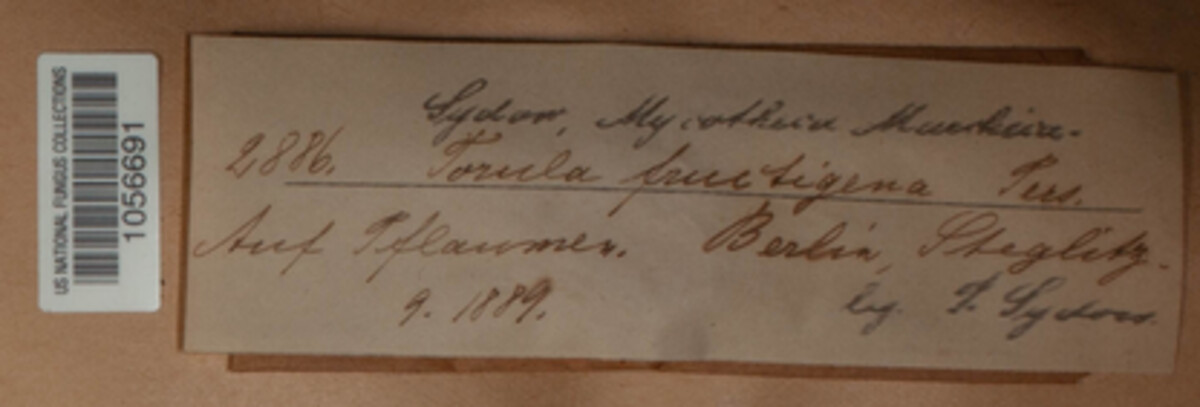 US NATIONAL FUNGUS COLLECTIONS
1056691
Sydow, Mycotheca Marchica.
2886. Torula fructigena Pers.
Auf Pflaumen. Berlin, Steglitz.
9. 1889. leg. P. Sydow.